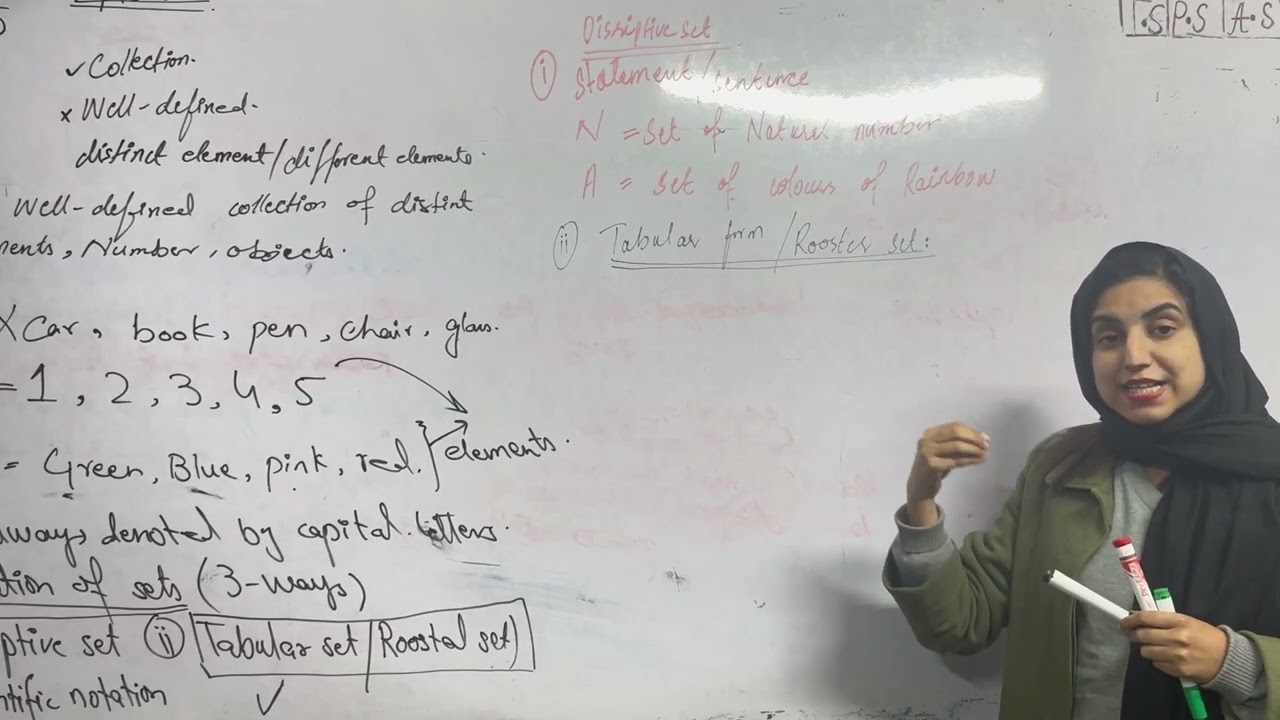 ✓ Collection.
× Well-defined.
distinct element/different elements.
Well-defined collection of distint
ments, Number, objects.
X Car, book, pen, chair, glass.
= 1, 2, 3, 4, 5
= Green, Blue, pink, red. } elements.
ways denoted by capital letters.
tion of sets (3-ways)
ptive set (ii) Tabular set / Roostel set)
ntific notation ✓
Disriptive set
(i) Statement/sentence
N = set of Natural number
A = set of colours of Rainbow
(ii) Tabular form / Rooster set:
T.S P.S A.S